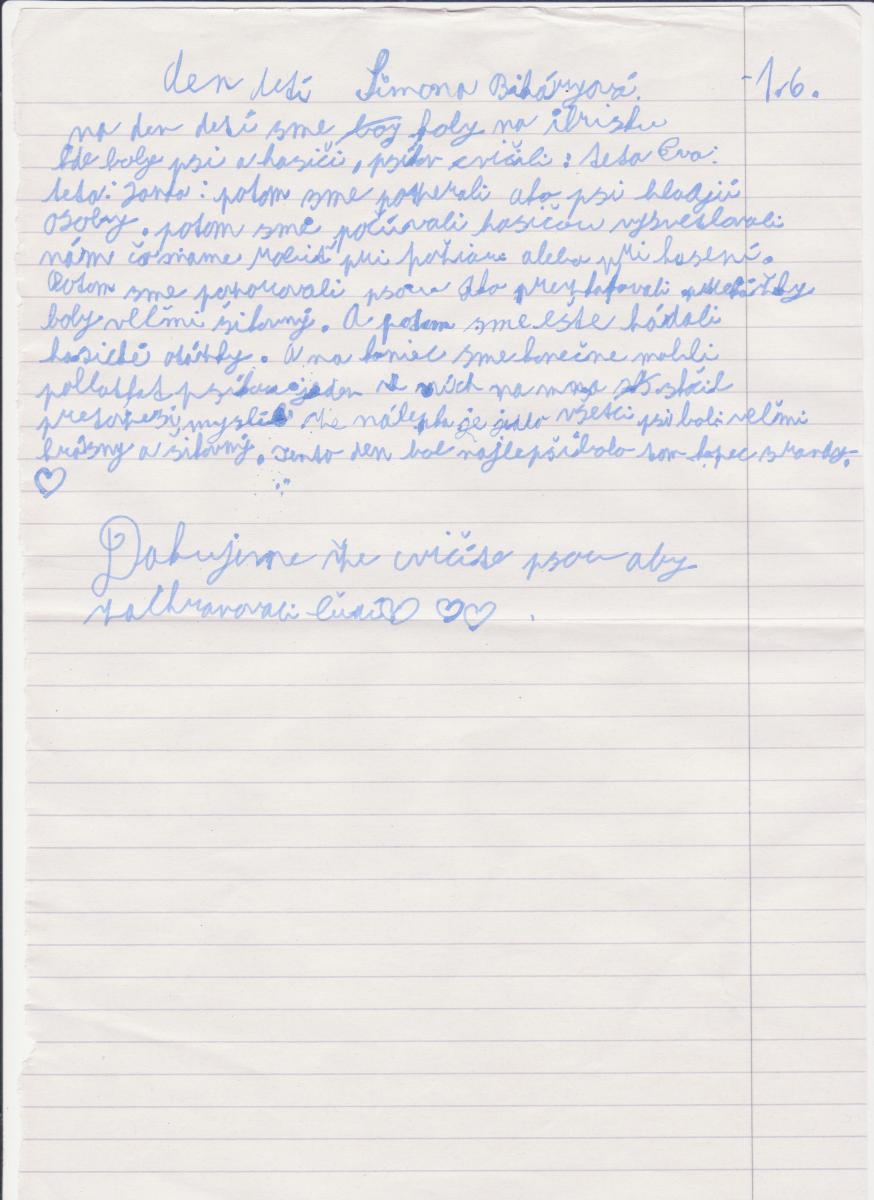 den detí Simona Biháryová. -1.6.
na den detí sme boly na ihrisku
kde boly psi a hasiči, psíkov cvičili: teta Eva:
teta: Janka: potom sme pozerali ako psi hladajú
osoby. potom sme počúvali hasičou vysvetlovali
nám čo mame robiť pri požiaru alebo pri hasení.
Potom sme pozorovali psou ako prey prekážky
boly velmi šikovný. A potom sme ešte hádali
hasické otázky. A na koniec sme konečne mohli
pohladkat psíkou jeden z nich na mna skočil
pretože si myslel že nálepka je jedlo všetci psi boli velmi
krásny a šikovný. Tento den bol najlepší bolo tam kopec srandy.
Dakujeme že cvičíte psou aby
zachranovali ludí